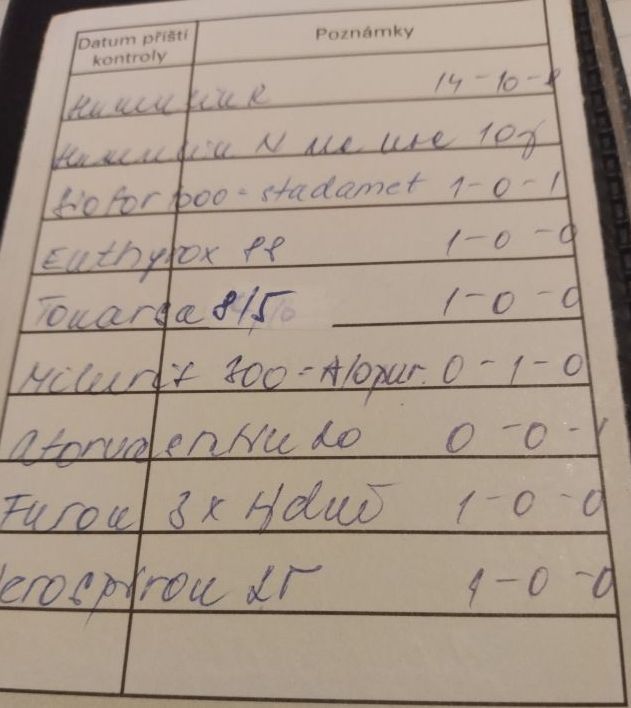 Datum příští kontroly Poznámky
Humulin R 14-10-8
Humulin N na noc 10j
Siofor 1000 = stadamet 1-0-1
Euthyrox 88 1-0-0
Tonarssa 8/5 1-0-0
Milurit 300 = Alopur. 0-1-0
Atorva 20 0-0-1
Furon 3x týdně 1-0-0
Verospiron 25 1-0-0